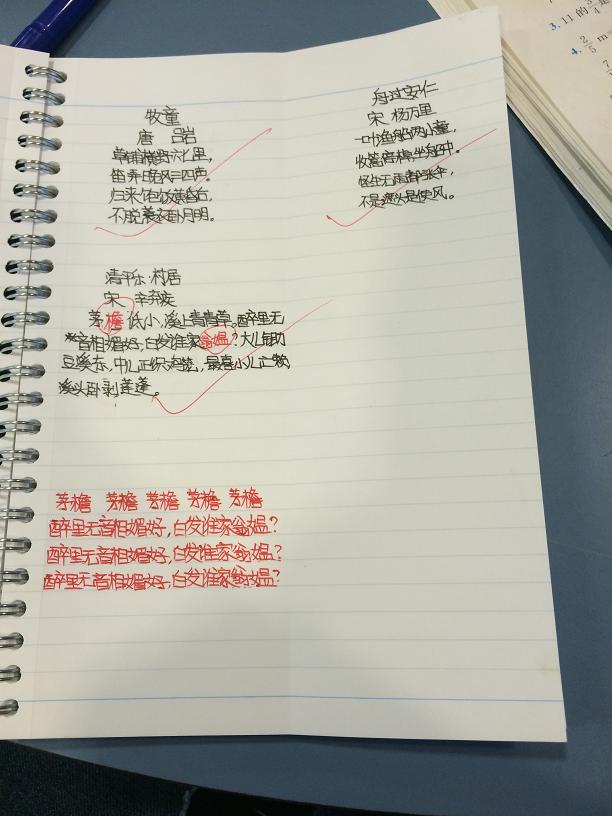 牧童
唐 吕岩
草铺横野六七里,
笛弄晚风三四声。
归来饱饭黄昏后,
不脱蓑衣卧月明。
舟过安仁
宋 杨万里
一叶渔船两小童,
收篙停棹坐船中。
怪生无雨都张伞,
不是遮头是使风。
清平乐·村居
宋 辛弃疾
茅檐低小,溪上青青草。醉里无
音相媚好,白发谁家翁媪?大儿锄
豆溪东,中儿正织鸡笼,最喜小儿亡赖,
溪头卧剥莲蓬。
茅檐 茅檐 茅檐 茅檐 茅檐
醉里无音相媚好,白发谁家翁媪?
醉里无音相媚好,白发谁家翁媪?
醉里无音相媚好,白发谁家翁媪?
3. 11的
4. 2/5 m=